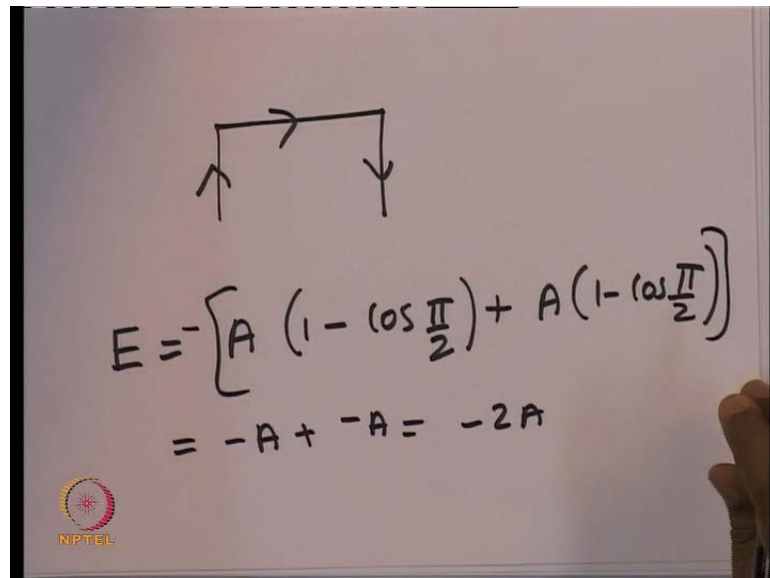 E = -[A (1 - cos π/2) + A(1 - cos π/2)]
= -A + -A = -2A
NPTEL